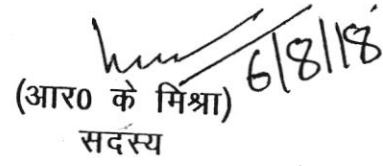 6/8/18
(आर0 के मिश्रा)
सदस्य